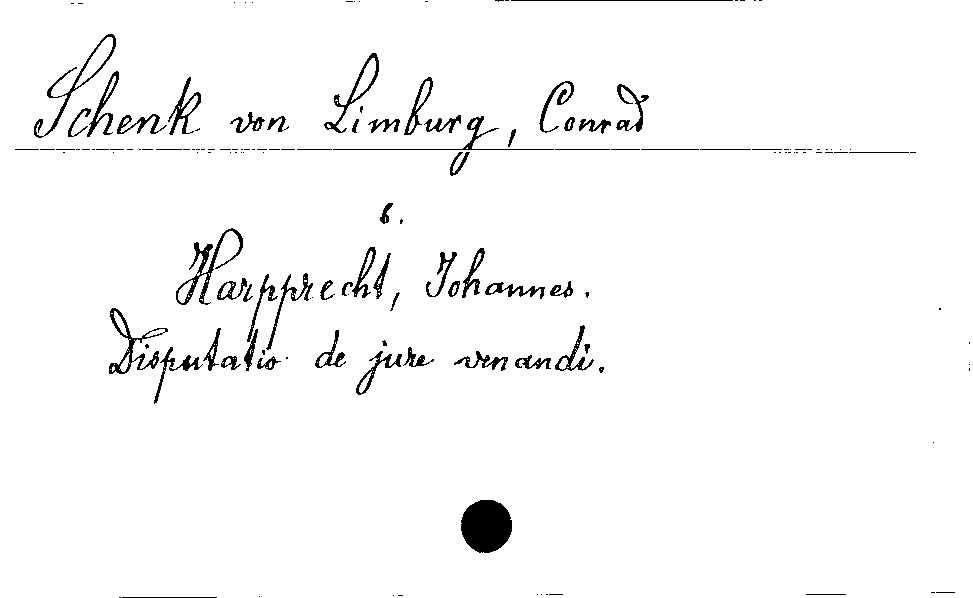 Schenk von Limburg, Conrad
s.
Harpprecht, Johannes.
Disputatio de jure venandi.